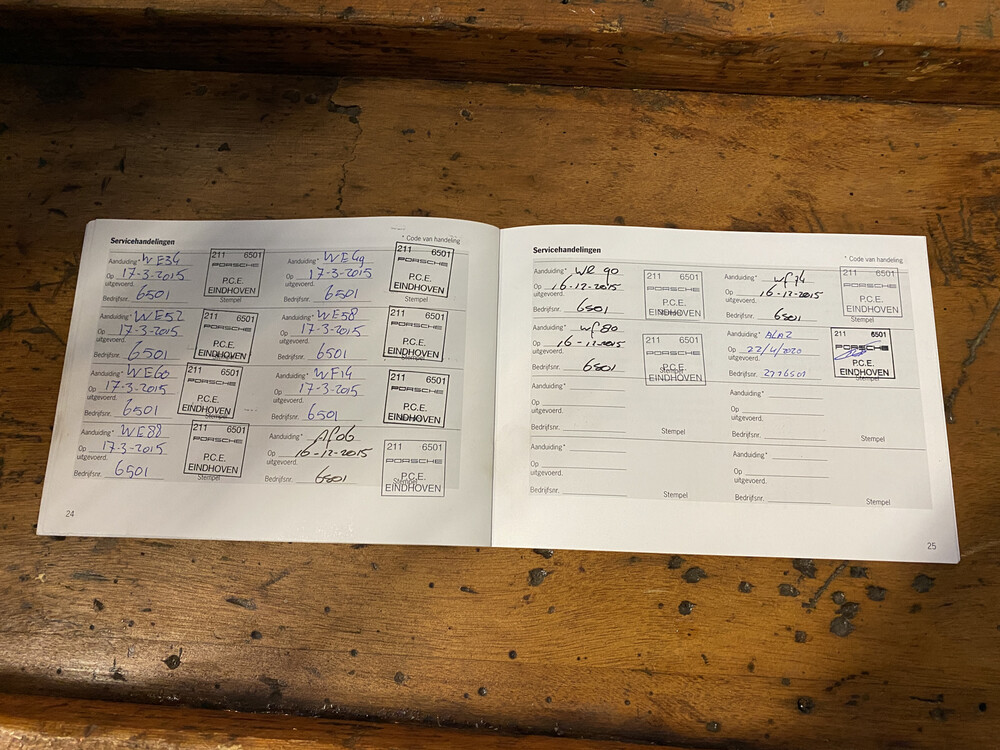 Servicehandelingen
* Code van handeling
Aanduiding* WE34
Op 17-3-2015
uitgevoerd.
Bedrijfsnr. 6501
211 6501
PORSCHE
P.C.E.
EINDHOVEN
Stempel
Aanduiding* WE49
Op 17-3-2015
uitgevoerd.
Bedrijfsnr. 6501
211 6501
PORSCHE
P.C.E.
EINDHOVEN
Stempel
Aanduiding* WE52
Op 17-3-2015
uitgevoerd.
Bedrijfsnr. 6501
211 6501
PORSCHE
P.C.E.
EINDHOVEN
Stempel
Aanduiding* WE58
Op 17-3-2015
uitgevoerd.
Bedrijfsnr. 6501
211 6501
PORSCHE
P.C.E.
EINDHOVEN
Stempel
Aanduiding* WE60
Op 17-3-2015
uitgevoerd.
Bedrijfsnr. 6501
211 6501
PORSCHE
P.C.E.
EINDHOVEN
Stempel
Aanduiding* WF14
Op 17-3-2015
uitgevoerd.
Bedrijfsnr. 6501
211 6501
PORSCHE
P.C.E.
EINDHOVEN
Stempel
Aanduiding* WE88
Op 17-3-2015
uitgevoerd.
Bedrijfsnr. 6501
211 6501
PORSCHE
P.C.E.
EINDHOVEN
Stempel
Aanduiding* AF06
Op 16-12-2015
uitgevoerd.
Bedrijfsnr. 6501
211 6501
PORSCHE
P.C.E.
EINDHOVEN
Stempel
24
Servicehandelingen
* Code van handeling
Aanduiding*
Op 16-12-2015
uitgevoerd.
Bedrijfsnr. 6501
211 6501
PORSCHE
P.C.E.
EINDHOVEN
Stempel
Aanduiding* wf74
Op 16-12-2015
uitgevoerd.
Bedrijfsnr. 6501
211 6501
PORSCHE
P.C.E.
EINDHOVEN
Stempel
Aanduiding* wf80
Op 16-12-2015
uitgevoerd.
Bedrijfsnr. 6501
211 6501
PORSCHE
P.C.E.
EINDHOVEN
Stempel
Aanduiding* ALA2
Op 22/4/2020
uitgevoerd.
Bedrijfsnr. 2116501
211 6501
PORSCHE
P.C.E.
EINDHOVEN
Stempel
Aanduiding*
Op
uitgevoerd.
Bedrijfsnr.
Stempel
Aanduiding*
Op
uitgevoerd.
Bedrijfsnr.
Stempel
Aanduiding*
Op
uitgevoerd.
Bedrijfsnr.
Stempel
Aanduiding*
Op
uitgevoerd.
Bedrijfsnr.
Stempel
25